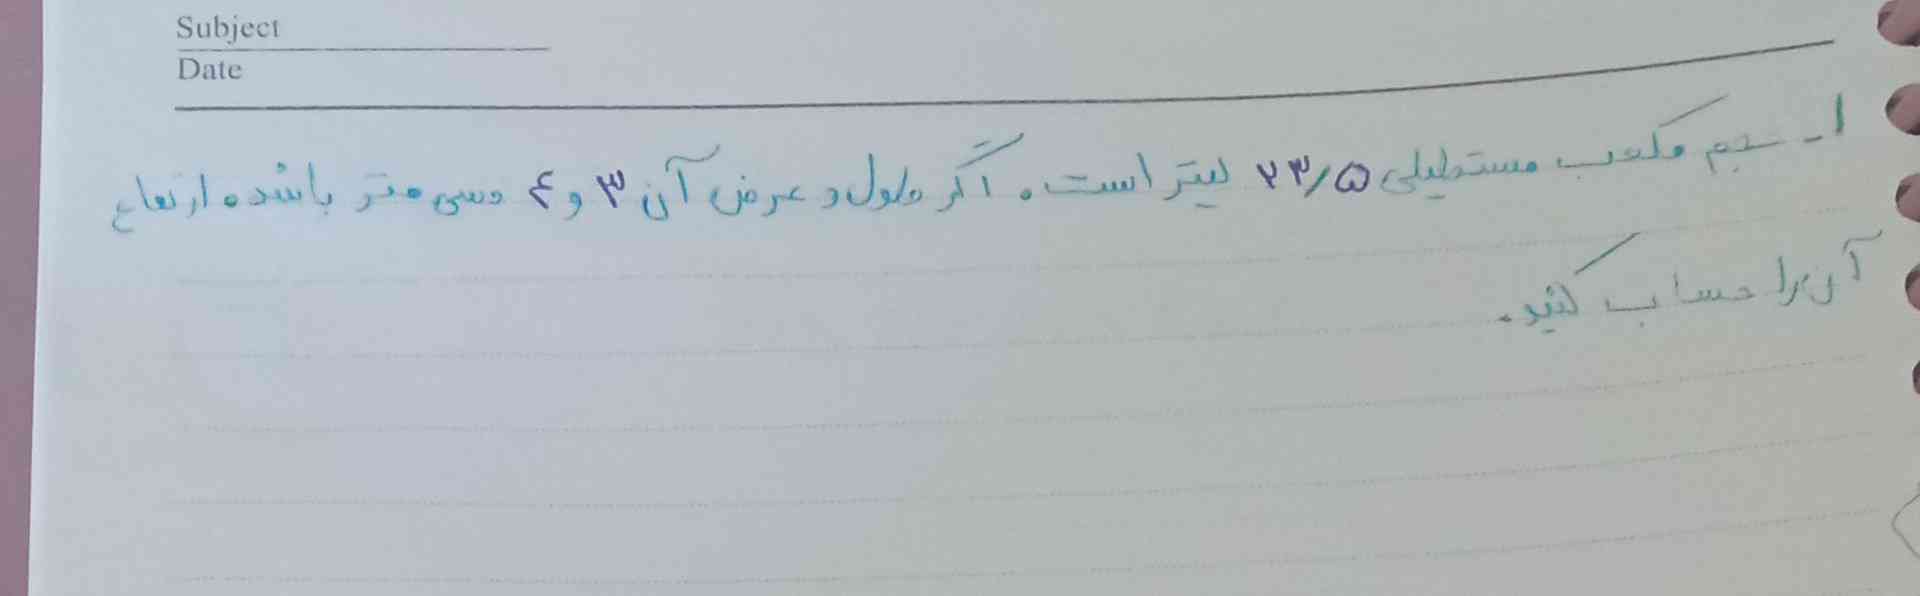 Subject
Date
۱- حجم مکعب مستطیلی ۲۳/۵ لیتر است. اگر طول و عرض آن ۳ و ۴ دسی متر باشد. ارتفاع
آن را حساب کنید.